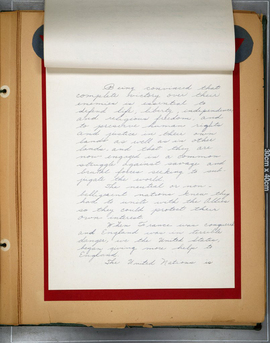 Being convinced that
complete victory over their
enemies is essential to
defend life, liberty, independence
and religious freedom, and
to preserve human rights
and justice in their own
lands as well as in other
lands, and that they are
now engaged in a common
struggle against savage and
brutal forces seeking to sub
jugate the world.
The neutral or non-
belligerent nations knew they
had to unite with the Allies
so they could protect their
own interest.
When France was conquered
and England was in terrible
danger, the United States
began giving more help to
England.
The United Nations is
30cm x 40cm